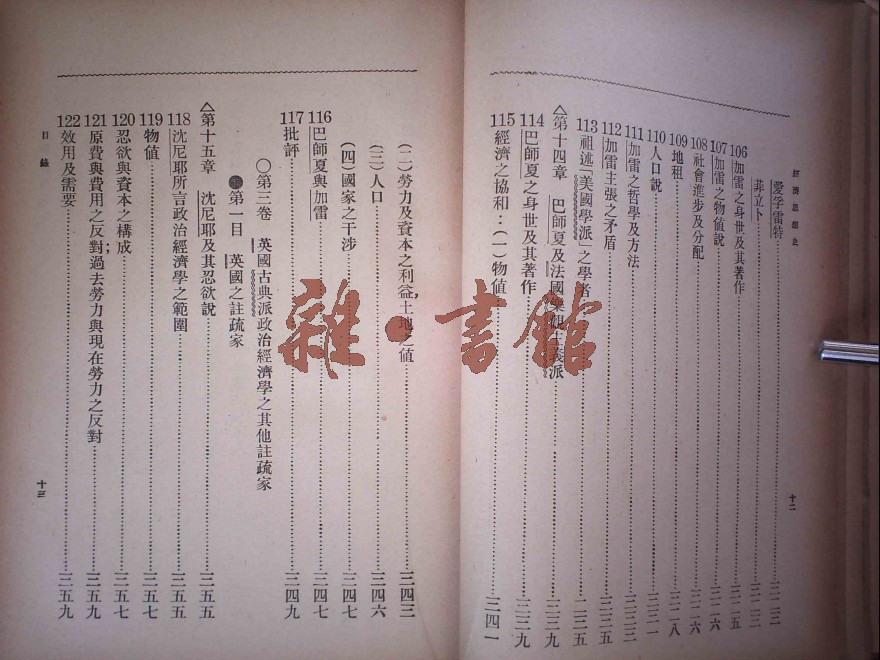 經濟思想史
十二
愛孚雷特……三二三
菲立卜……三二三
106 加雷之身世及其著作……三二五
107 加雷之物值說……三二六
108 社會進步及分配……三二六
109 地租……三二八
110 人口說……三三一
111 加雷之哲學及方法……三三三
112 加雷主張之矛盾……三三五
113 祖述「美國學派」之學者……三三五
△第十四章 巴師夏及法國樂觀主義派……三三九
114 巴師夏之身世及其著作……三三九
115 經濟之協和:(一)物值……三四一
(二)勞力及資本之利益,土地之值……三四三
(三)人口……三四六
(四)國家之干涉……三四七
116 巴師夏與加雷……三四七
117 批評……三四九
○第三卷 英國古典派政治經濟學之其他註疏家
●第一目 英國之註疏家
△第十五章 沈尼耶及其忍欲說……三五五
118 沈尼耶所言政治經濟學之範圍……三五五
119 物值……三五七
120 忍欲與資本之構成……三五七
121 原費與費用之反對;過去勞力與現在勞力之反對……三五九
122 效用及需要……三五九
目錄
十三
雜·書館